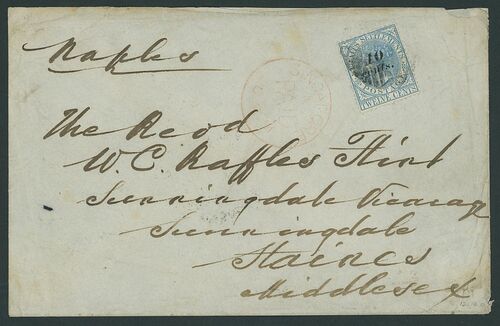 Naples
STRAITS SETTLEMENTS
10
cts.
POSTAGE
TWELVE CENTS
The Revd
W. C. Raffles Flint
Sunningdale Vicarage
Sunningdale
Staines
Middlesex